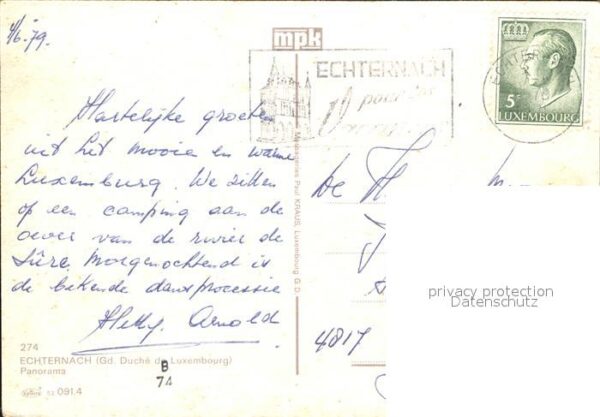 4/6-79.
mpk
ECHTERNACH
pour vos
LUXEMBOURG
5F
Hartelijke groeten
uit het mooie en warme
Luxemburg. We zitten
op een camping aan de
oever van de rivier de
Sûre. Morgenochtend is
de bekende dansprocessie
Hetty Arnold
De
4817
Messageries Paul KRAUS, Luxembourg G.D.
privacy protection
Datenschutz
274
ECHTERNACH (Gd. Duché de Luxembourg)
Panorama
52 091.4
B
74